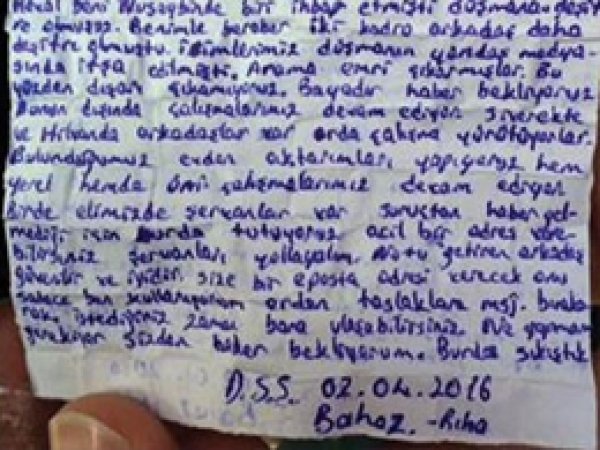 Heval beni Nusaybinde bir ihbar etmişti düşmana deşif
re olmuşuz. Benimle beraber iki kadro arkadaş daha
deşifre olmuştu isimlerimiz düşmanın yandaş medya-
sında ifşa edilmişti. Arama emri çıkarmışlar. Bu
yüzden dışarı çıkamıyoruz. Bayadır haber bekliyoruz
Bunun dışında çalışmalarımız devam ediyor siverekte
ve Hilvanda arkadaşlar var orda çalışma yürütüyorlar.
Bulunduğumuz evden aktarımları yapıyoruz hem
yerel hemde çalışmalarımız devam ediyor
Birde elimizde şervanlar var suruçtan haber gel-
mediği için burda tutuyoruz acil bir adres vere-
bilirseniz şervanları yollayalım. Notu getiren arkadaş
güvenilir ve iyidir. size bir eposta adresi verecek onu
sadece ben kullanıyorum ordan taslaklara msj. bıraka
rak istediğiniz zaman bana ulaşabilirsiniz. Ne yapmam
gerekiyor sizden haber bekliyorum. Burda sıkıştık
D.S.S. 02.04.2016
Bahoz -Riha